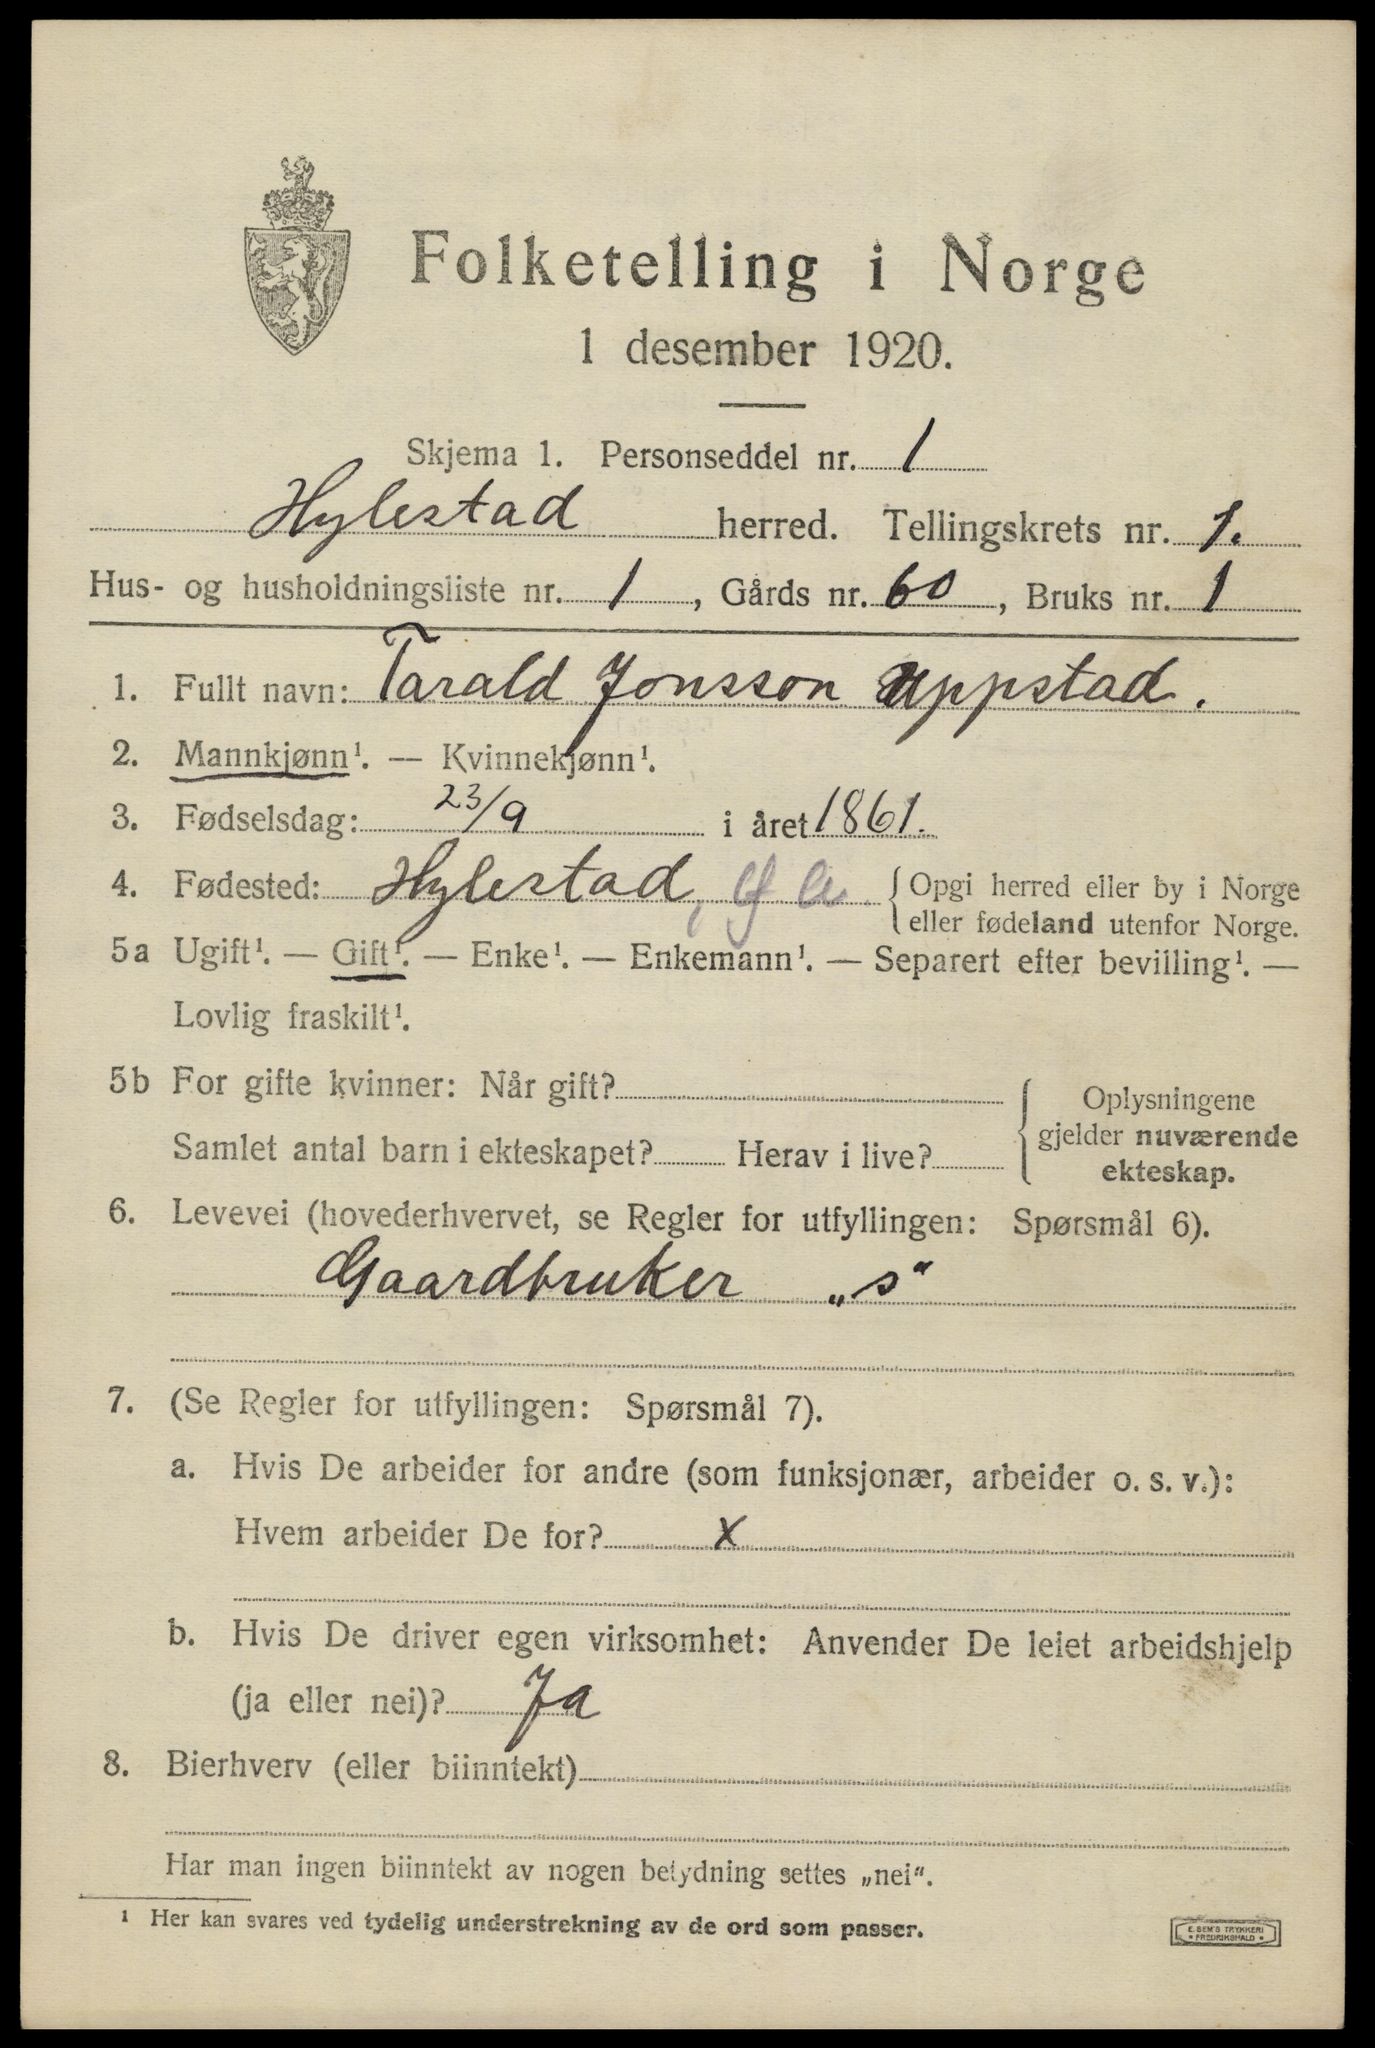 Folketelling i Norge
1 desember 1920.
Skjema 1. Personseddel nr. 1
Hylestad herred. Tellingskrets nr. 1.
Hus- og husholdningsliste nr. 1, Gårds nr. 60, Bruks nr. 1
1. Fullt navn: Tarald Jonsson Uppstad.
2. Mannkjønn¹. — Kvinnekjønn¹.
3. Fødselsdag: 23/9 i året 1861.
4. Fødested: Hylestad, { Opgi herred eller by i Norge
eller fødeland utenfor Norge.
5a Ugift¹. — Gift¹. — Enke¹. — Enkemann¹. — Separert efter bevilling¹. —
Lovlig fraskilt¹.
5b For gifte kvinner: Når gift?
Samlet antal barn i ekteskapet? Herav i live?
Oplysningene
gjelder nuværende
ekteskap.
6. Levevei (hovederhvervet, se Regler for utfyllingen: Spørsmål 6).
Gaardbruker „s“
7. (Se Regler for utfyllingen: Spørsmål 7).
a. Hvis De arbeider for andre (som funksjonær, arbeider o. s. v.):
Hvem arbeider De for? X
b. Hvis De driver egen virksomhet: Anvender De leiet arbeidshjelp
(ja eller nei)? Ja
8. Bierhverv (eller biinntekt)
Har man ingen biinntekt av nogen betydning settes „nei“.
¹ Her kan svares ved tydelig understrekning av de ord som passer.
E. SEM'S TRYKKERI
• FREDRIKSHALD •